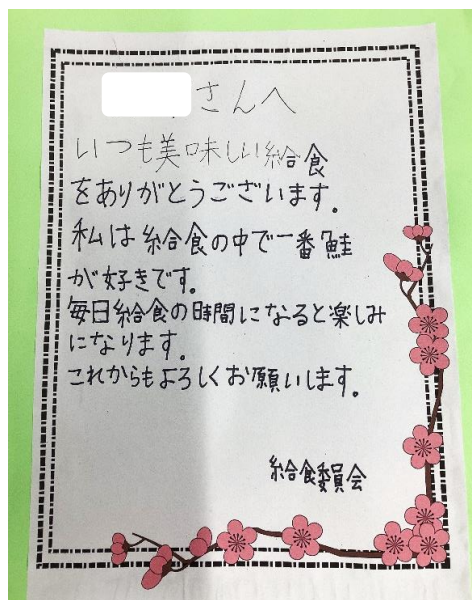 さんへ
いつも美味しい給食
をありがとうございます。
私は給食の中で一番鮭
が好きです。
毎日給食の時間になると楽しみ
になります。
これからもよろしくお願いします。
給食委員会